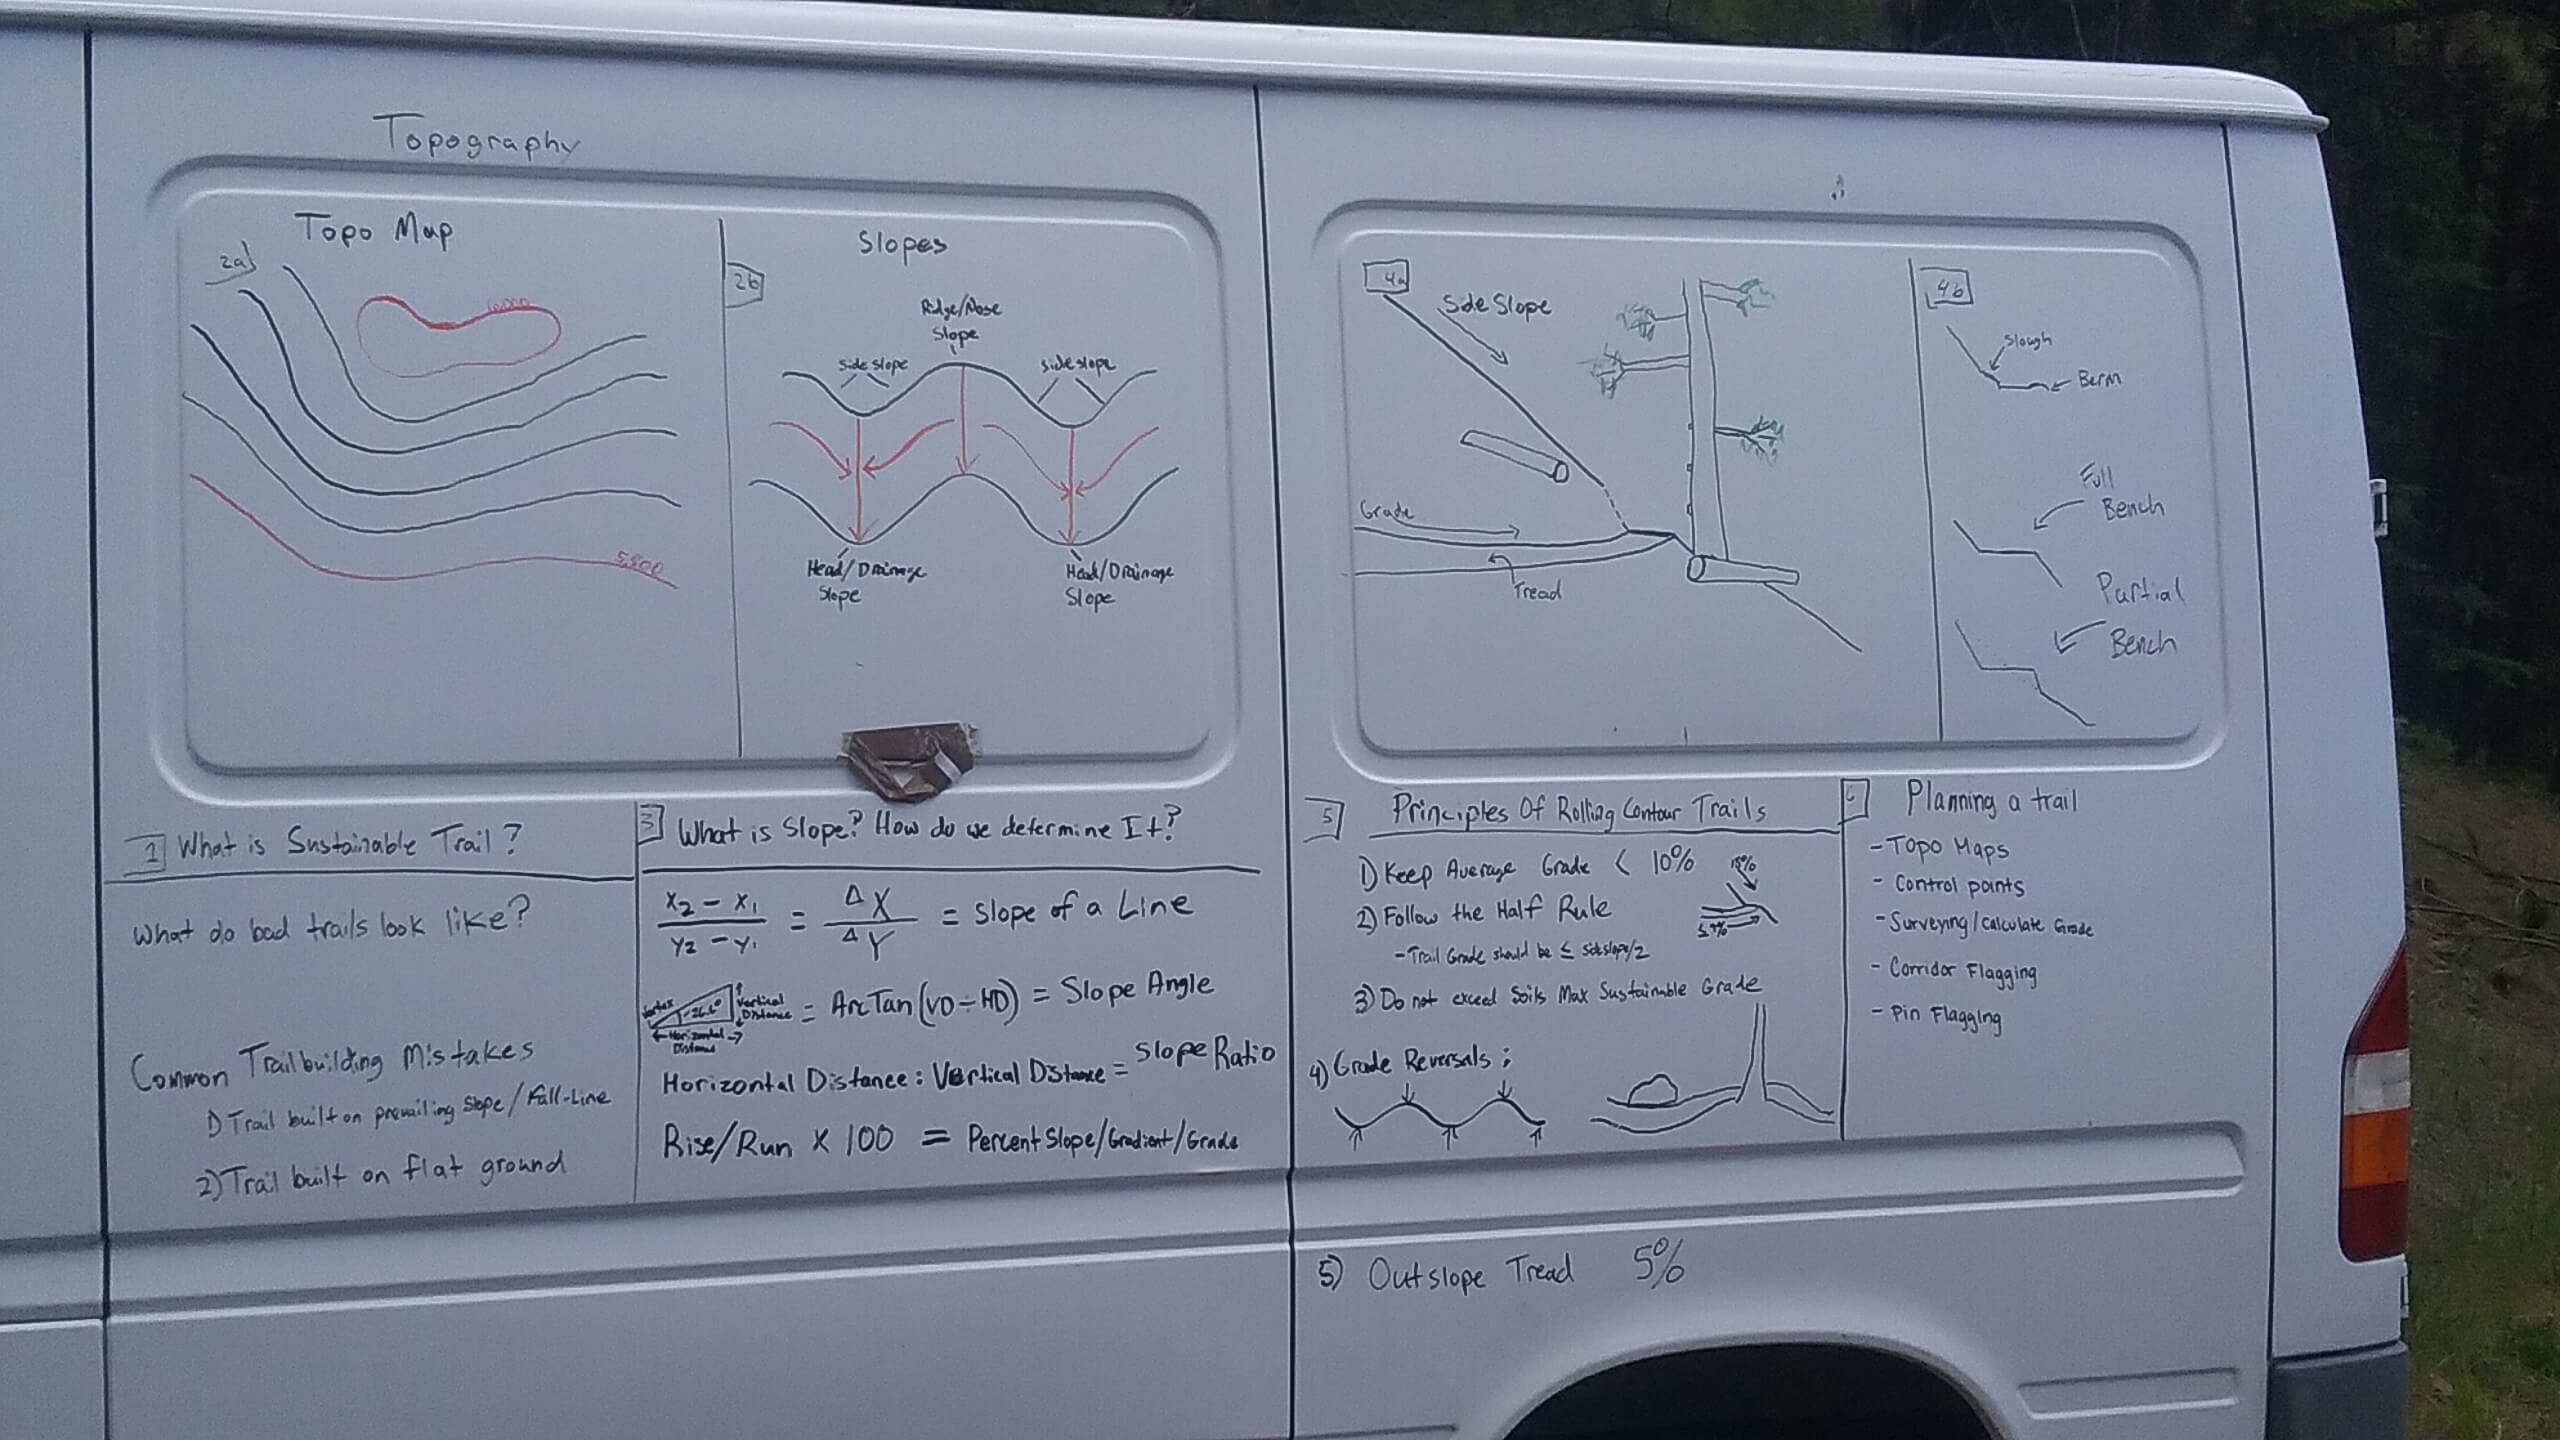 Topography
Topo Map
2a
10000
5,800
2b
Slopes
Ridge/Nose
Slope
Side slope
Side slope
Head/Drainage
Slope
Head/Drainage
Slope
1 What is Sustainable Trail?
What do bad trails look like?
Common Trailbuilding Mistakes
1) Trail built on prevailing slope/Fall-Line
2) Trail built on flat ground
3 What is Slope? How do we determine It?
X2 - X1 / Y2 - Y1 = ΔX / ΔY = Slope of a Line
Vertex
26.6°
Vertical
Distance
Horizontal
Distance
= ArcTan(VD÷HD) = Slope Angle
Horizontal Distance : Vertical Distance = Slope Ratio
Rise/Run x 100 = Percent Slope/Gradient/Grade
4a
Side Slope
Grade
Tread
4b
Slough
Berm
Full
Bench
Partial
Bench
5 Principles Of Rolling Contour Trails
1) Keep Average Grade < 10%
2) Follow the Half Rule
- Trail Grade should be ≤ sideslope/2
3) Do not exceed Soils Max Sustainable Grade
4) Grade Reversals:
5) Outslope Tread 5%
6 Planning a trail
- Topo Maps
- Control points
- Surveying/Calculate Grade
- Corridor Flagging
- Pin Flagging